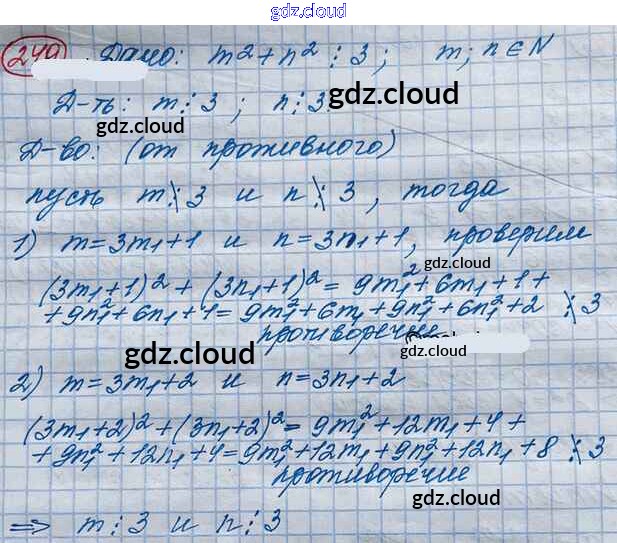 gdz.cloud
249 Дано: m² + n² ⋮ 3; m; n ∈ N
Д-ть: m ⋮ 3; n ⋮ 3. gdz.cloud
gdz.cloud
Д-во: (от противного)
пусть m ⋮̸ 3 и n ⋮̸ 3, тогда
1) m = 3m₁ + 1 и n = 3n₁ + 1, проверим
gdz.cloud
(3m₁+1)² + (3n₁+1)² = 9m₁² + 6m₁ + 1 +
+ 9n₁² + 6n₁ + 1 = 9m₁² + 6m₁ + 9n₁² + 6n₁² + 2 ⋮̸ 3
противоречие
gdz.cloud gdz.cloud
2) m = 3m₁ + 2 и n = 3n₁ + 2
(3m₁+2)² + (3n₁+2)² = 9m₁² + 12m₁ + 4 +
+ 9n₁² + 12n₁ + 4 = 9m₁² + 12m₁ + 9n₁² + 12n₁ + 8 ⋮̸ 3
противоречие
gdz.cloud
⇒ m ⋮ 3 и n ⋮ 3